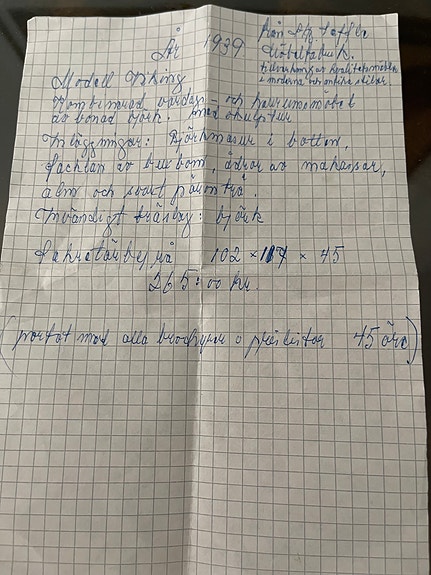 År 1939
Från
Möbelfabrik.
tillverkning av kvalitetsmöbler
i moderna och antika stilar.
Modell Viking
Kombinerad vardags- och herrumsmöbel
av bonad björk. med skulptur
Inläggningar: Björkmasur i botten,
av buxbom, ådror av mahogny,
alm och svart päronträ.
Invändigt träslag: björk
Sekretär 102 × 117 × 45
265:00 kr.
(portot med alla broschyrer o prislistor 45 öre)